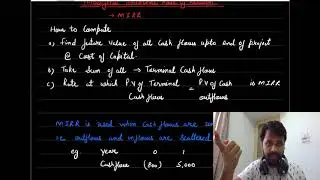 → MIRR
How to Compute
a) Find future value of all Cash flows upto end of project
@ Cost of Capital.
b) Take Sum of all → Terminal Cash flows
c) Rate at which P.V of Terminal = P.V of Cash is MIRR
Cashflow outflows
MIRR is used when Cash flows are
ie outflows and inflows are scattered
eg year 0 1
Cashflow (800) 5,000